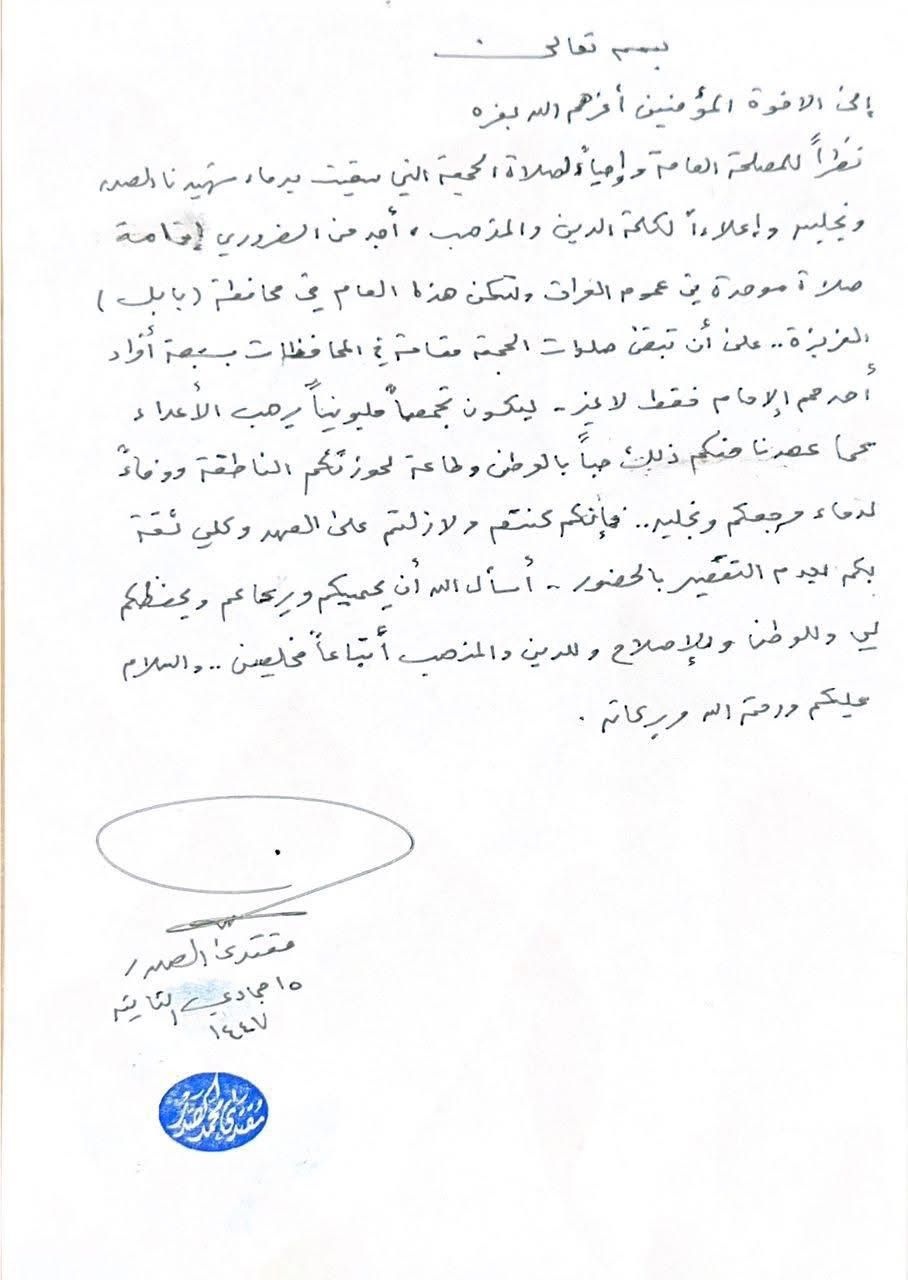 بسمه تعالى
إلى الاخوة المؤمنين أعزهم الله بعزه
نظراً للمصلحة العامة وإحياءً لصلاة الجمعة التي سقيت بدماء شهيدنا الصدر
ونجليه وإعلاءاً لكلمة الدين والمذهب ، أجد من الضروري إقامة
صلاة موحدة في عموم الفرات ولتكن هذا العام في محافظة (بابل)
العزيزة.. على أن تبقى صلوات الجمعة مقامة في المحافظات بسبعة أفراد
أحدهم الإمام فقط لاغير - ليكون تجمعاً مليونياً يرهب الأعداء
كما عهدنا منكم ذلك حباً بالوطن وطاعة لحوزتكم الناطقة ووفاءً
لدماء مرجعكم ونجليه.. فإنكم كنتم ولازلتم على العهد وكلي ثقة
بكم بعدم التقصير بالحضور - أسأل الله أن يحميكم ويرعاكم ويحفظكم
لي وللوطن وللإصلاح وللدين والمذهب أتباعاً مخلصين .. والسلام
عليكم ورحمة الله وبركاته .
مقتدى الصدر
١٥ جمادي الثانية
١٤٤٧
مقتدى محمد الصدر